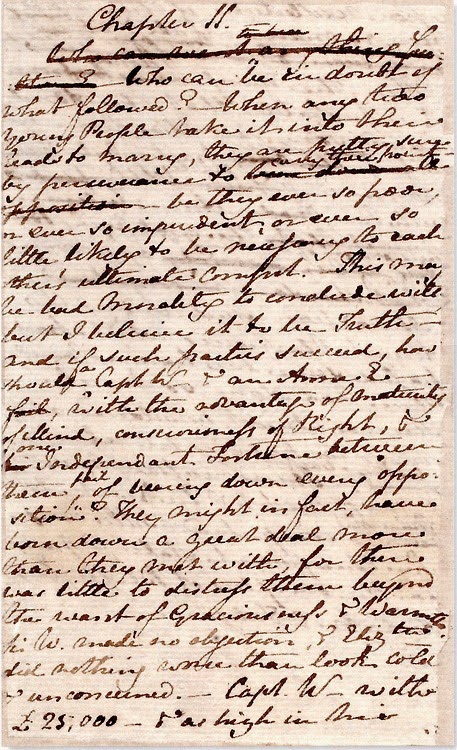 Chapter 11.
Who can be in doubt of
what followed? When any two
Young People take it into their
heads to marry, they are pretty sure
by perseverance to carry their point
be they ever so poor,
or ever so imprudent, or ever so
little likely to be necessary to each
other's ultimate comfort. This may
be bad Morality to conclude with
but I believe it to be Truth —
and if such parties succeed, how
should a Capt W— & an Anne E—
fail, with the advantage of Maturity
of Mind, consciousness of Right, &
one Independant Fortune between
them fail of bearing down every oppo-
sition? They might in fact, have
born down a great deal more
than they met with, for there
was little to distress them beyond
the want of Graciousness & Warmth.
W. made no objection, & Eliz:th
did nothing worse than look cold
& unconcerned. — Capt. W— with
£25,000 — & as high in his